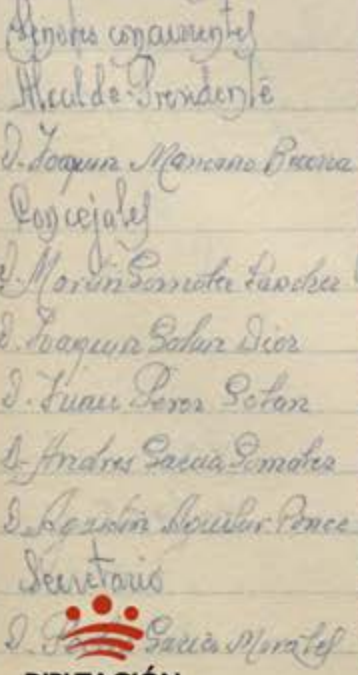 Señores concurrentes
Alcalde-Presidente
D. Joaquin Manzano Becerra
Concejales
D. Martin Gonzalez Sanchez
D. Joaquin Solan Dios
D. Juan Perez Solan
D. Andres Garcia Gonzalez
D. Agustin Aguilar Ponce
Secretario
D. Garcia Morales
DIPUTACIÓN